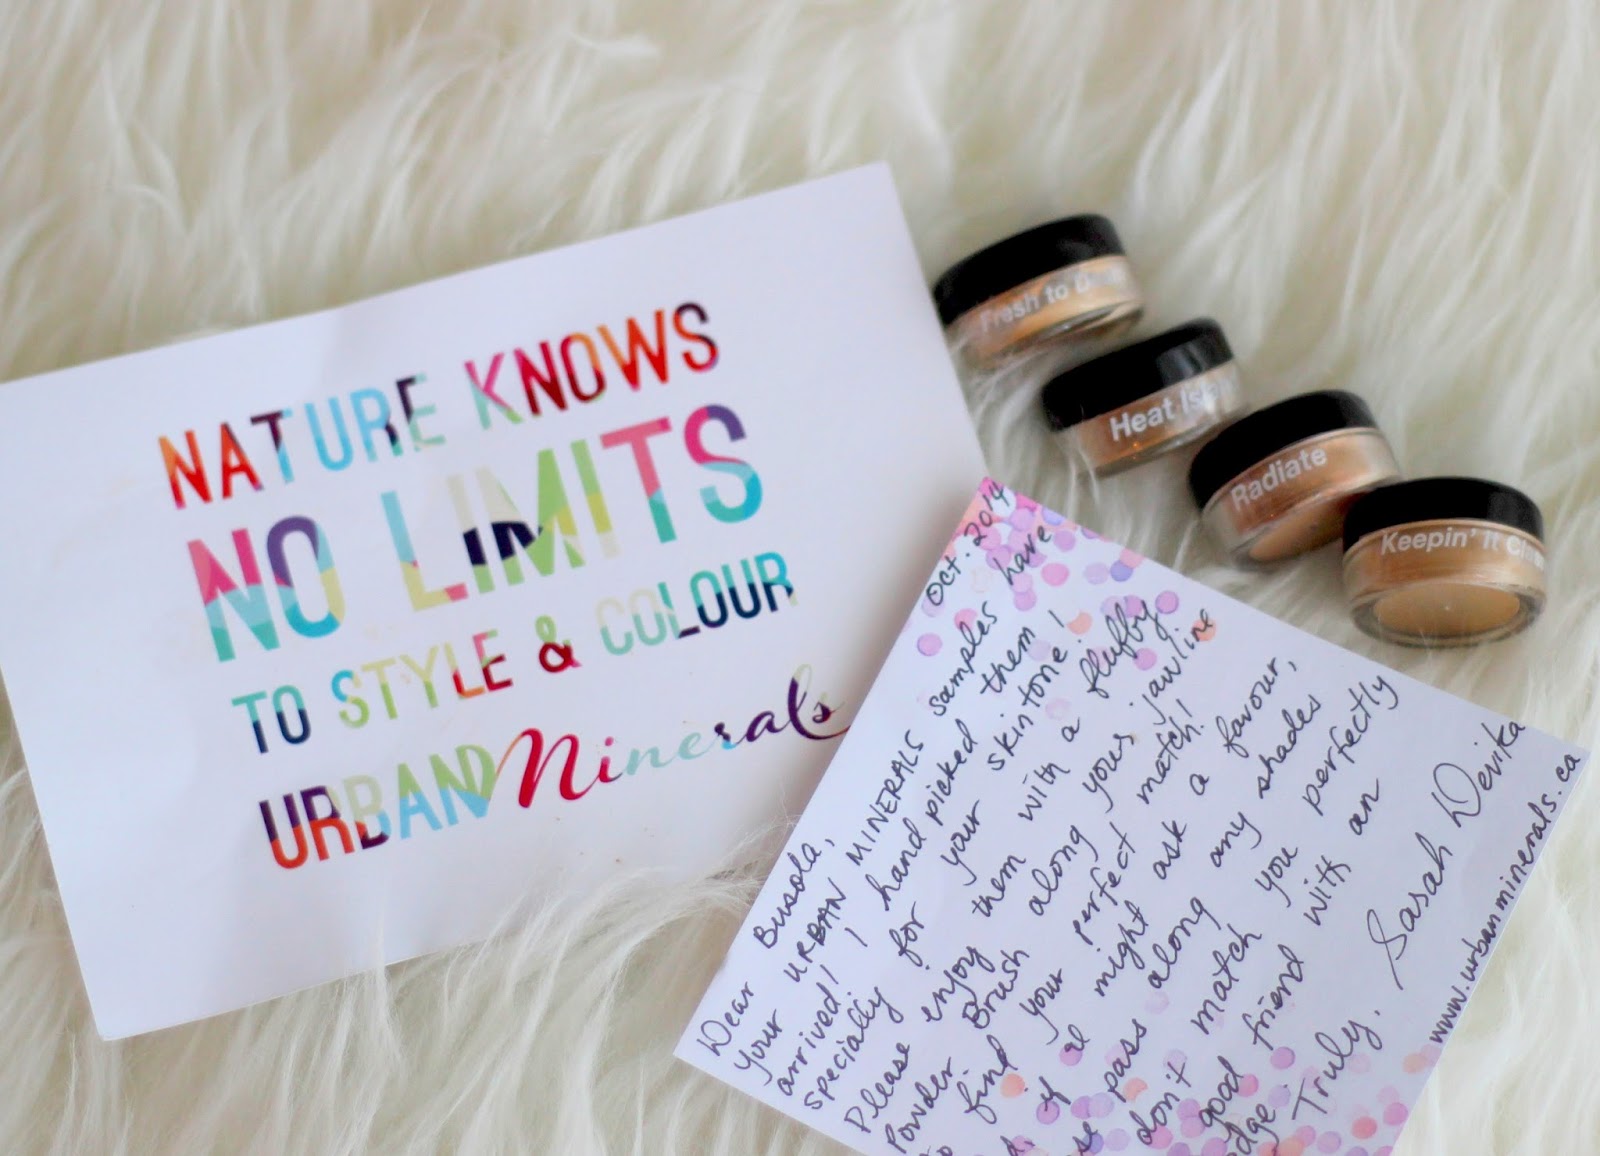 NATURE KNOWS
NO LIMITS
TO STYLE & COLOUR
URBAN Minerals
Fresh to
Heat
Radiate
Keepin' It
Oct. 2014
Dear Busola,
Your URBAN MINERALS samples have
arrived! I hand picked them
specially for your skintone!
Please enjoy them with a fluffy
Powder Brush along your jawline
to find your perfect match!
if I might ask a favour,
pass along any shades
don't match you perfectly
good friend with an
Truly,
Sarah Devika
www.urbanminerals.ca